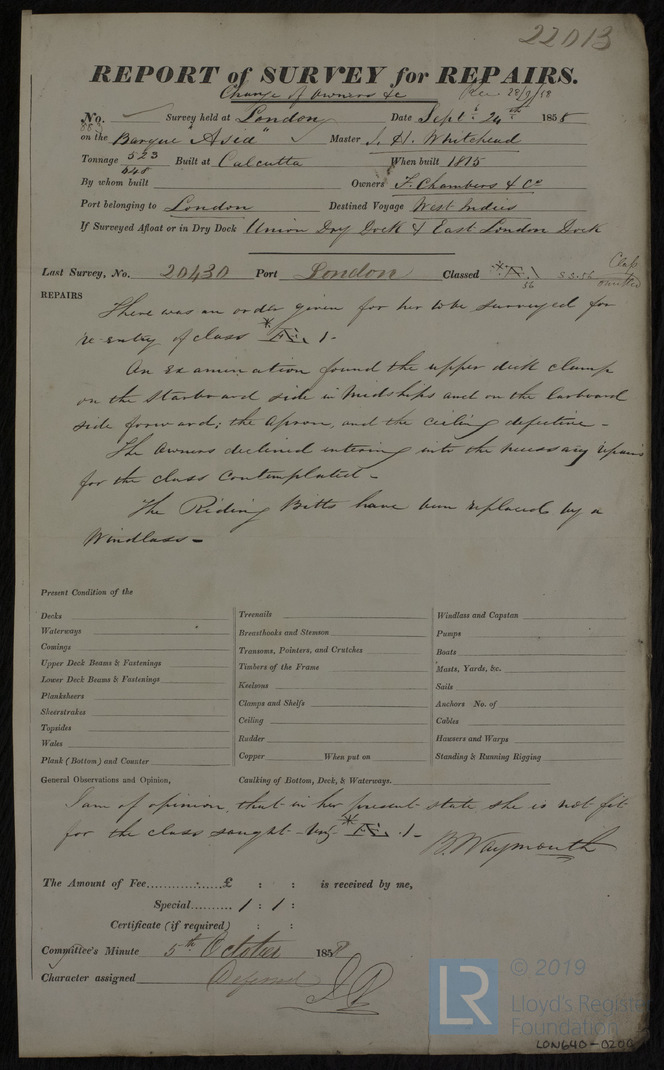 22013
REPORT of SURVEY for REPAIRS.
Change of Owners &c Rec 28/9/58
No. Survey held at London Date Septr. 24th 1858
on the Barque "Asia" Master J. H. Whitehead
Tonnage 523 Built at Calcutta When built 1815
648
By whom built Owners F. Chambers & Co
Port belonging to London Destined Voyage West Indies
If Surveyed Afloat or in Dry Dock Union Dry Dock & East London Dock
Last Survey, No. 20430 Port London Classed Æ.1 56 Class omitted
REPAIRS
There was an order given for her to be surveyed for
re-entry of class * Æ. 1-
An Examination found the upper deck clamp
on the Starboard side in Midships and on the larboard
side forward; the apron, and the ceiling defective -
The Owners declined entering into the necessary repairs
for the class contemplated -
The Riding Bitts have been replaced by a
Windlass -
Present Condition of the
Decks Treenails Windlass and Capstan
Waterways Breasthooks and Stemson Pumps
Comings Transoms, Pointers, and Crutches Boats
Upper Deck Beams & Fastenings Timbers of the Frame Masts, Yards, &c.
Lower Deck Beams & Fastenings Keelsons Sails
Planksheers Clamps and Shelfs Anchors No. of
Sheerstrakes Ceiling Cables
Topsides Rudder Hawsers and Warps
Wales Copper When put on Standing & Running Rigging
Plank (Bottom) and Counter
General Observations and Opinion, Caulking of Bottom, Deck, & Waterways.
I am of opinion, that in her present state she is not fit
for the class sought - viz * Æ .1-
B. Waymouth
The Amount of Fee............£ : : is received by me,
Special.......... 1 : 1 :
Certificate (if required) : :
Committee's Minute 5th October 1858
Character assigned Deferred
© 2019
LR
Lloyd's Register
Foundation
LON640-0200